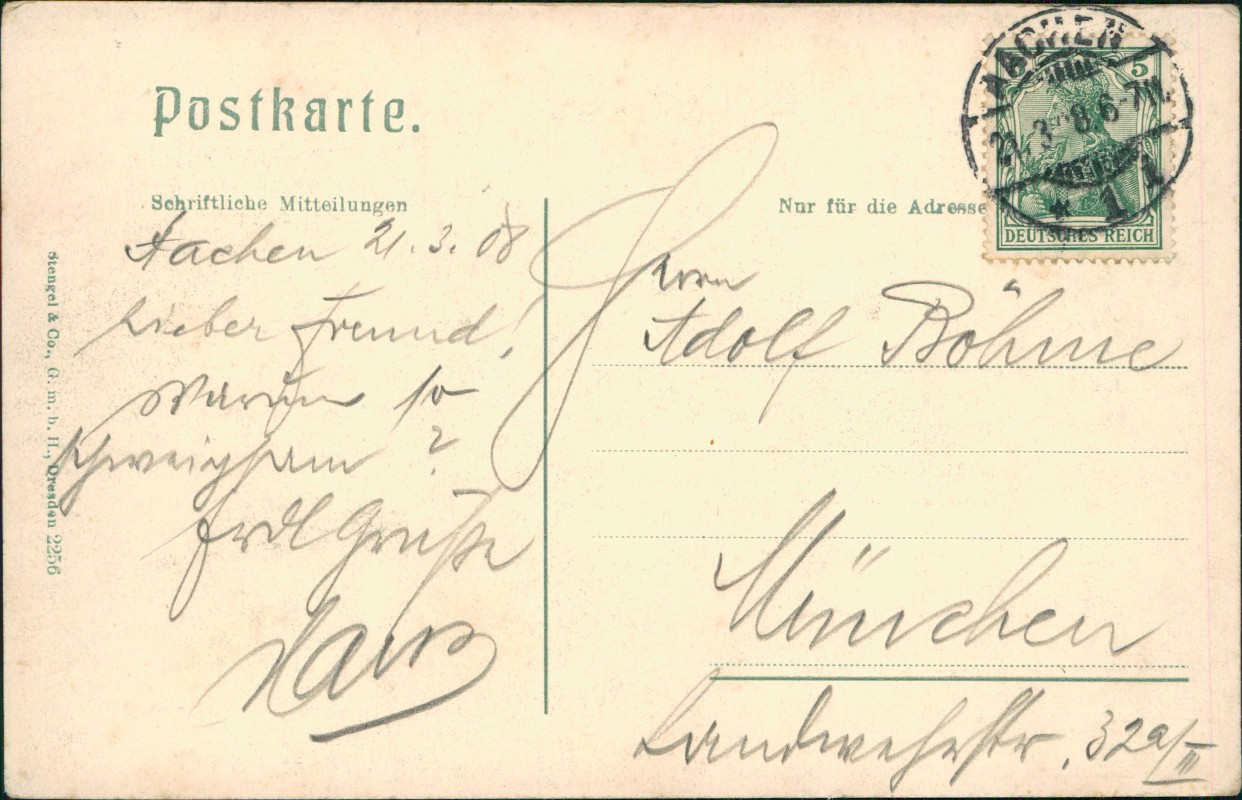 Postkarte.
Schriftliche Mitteilungen
Aachen 21.3.08
Lieber Freund!
Warum so
schweigsam?
Frdl Grüße
Hans
Stengel & Co., G. m. b. H., Dresden 2256
Nur für die Adresse
AACHEN
21.3.08.6-7N.
* 1 1
5
DEUTSCHES REICH
Herrn
Adolf Böhme
München
Landwehrstr. 32a/III